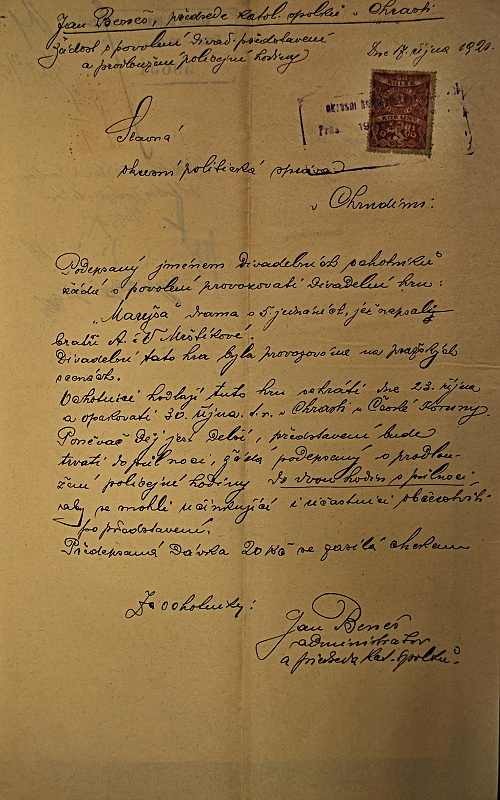 Jan Beneš, předseda katol. spolků v Chrasti
žádost o povolení divad. představení
a prodloužení policejní hodiny
Dne 17. října 192
okresní
Slavná
okresní politická správa
v Chrudimi:
Podepsaný jménem divadelních ochotníků
žádá o povolení provozovati divadelní hru:
„Maryša" drama o 5 jednáních, jež napsali
bratři A. a V. Mrštíkové.
Divadelní tato hra byla provozována na pražských
scenách.
Ochotníci hodlají tuto hru sehráti dne 23. října
a opakovati 30. října t. r. v Chrasti u České Koruny.
Poněvač děj jest delší, představení bude
trvati do půl noci, žádá podepsaný o prodlou-
žení policejní hodiny do dvou hodin s půlnoci,
aby se mohli účinkující i účastníci občerstviti
po představení.
Předepsaná dávka 20 Kč se zasílá chekem
Za ochotníky:
Jan Beneš
administrátor
a předseda Kat. Spolků